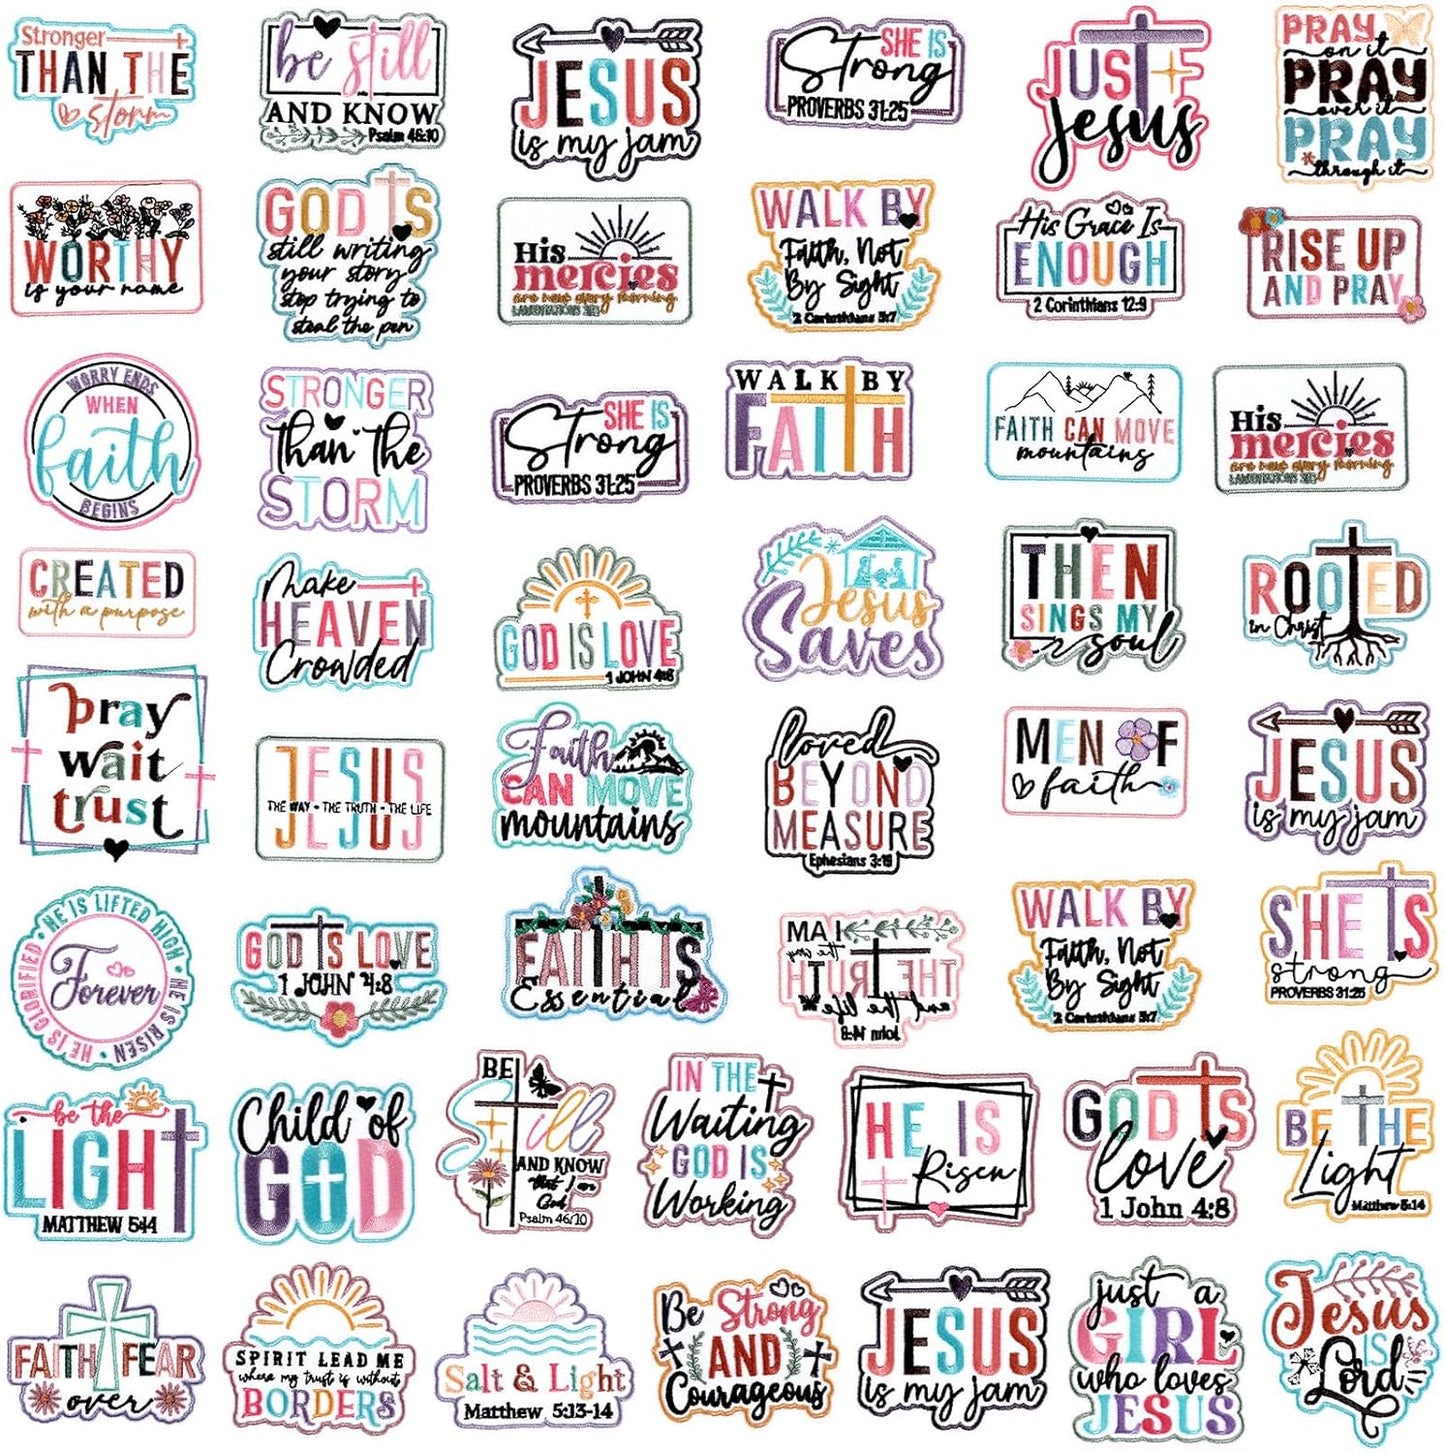 Stronger
THAN THE
storm
be still
AND KNOW
Psalm 46:10
JESUS
is my jam
SHE IS
Strong
PROVERBS 31:25
JUST
Jesus
PRAY
on it
PRAY
over it
PRAY
through it
WORTHY
is your name
GOD IS
still writing
your story
stop trying to
steal the pen
His
mercies
are new every morning
LAMENTATIONS
WALK BY
Faith, Not
By Sight
2 Corinthians 5:7
His Grace Is
ENOUGH
2 Corinthians 12:9
RISE UP
AND PRAY
WORRY ENDS
WHEN
faith
BEGINS
STRONGER
than the
STORM
SHE IS
Strong
PROVERBS 31:25
WALK BY
FAITH
FAITH CAN MOVE
mountains
His
mercies
are new every morning
LAMENTATIONS
CREATED
with a purpose
Make
HEAVEN
Crowded
GOD IS LOVE
1 JOHN 4:8
Jesus
Saves
THEN
SINGS MY
soul
ROOTED
in Christ
pray
wait
trust
JESUS
THE WAY - THE TRUTH - THE LIFE
Faith
CAN MOVE
mountains
loved
BEYOND
MEASURE
Ephesians 3:19
MEN OF
faith
JESUS
is my jam
HE IS LIFTED HIGH • HE IS RISEN • HE IS GLORIFIED •
Forever
GOD IS LOVE
1 JOHN 4:8
FAITH IS
Essential
I AM
the way
THE TRUTH
and the life
John 14:6
WALK BY
Faith, Not
By Sight
2 Corinthians 5:7
SHE IS
strong
PROVERBS 31:25
be the
LIGHT
MATTHEW 5:14
Child of
GOD
BE
Still
AND KNOW
that I am
God
Psalm 46:10
IN THE
Waiting
GOD IS
Working
HE IS
Risen
GOD IS
love
1 John 4:8
BE THE
Light
Matthew 5:14
FAITH FEAR
over
SPIRIT LEAD ME
where my trust is without
BORDERS
Salt & Light
Matthew 5:13-14
Be Strong
AND
Courageous
JESUS
is my jam
just a
GIRL
who loves
JESUS
Jesus
IS
Lord